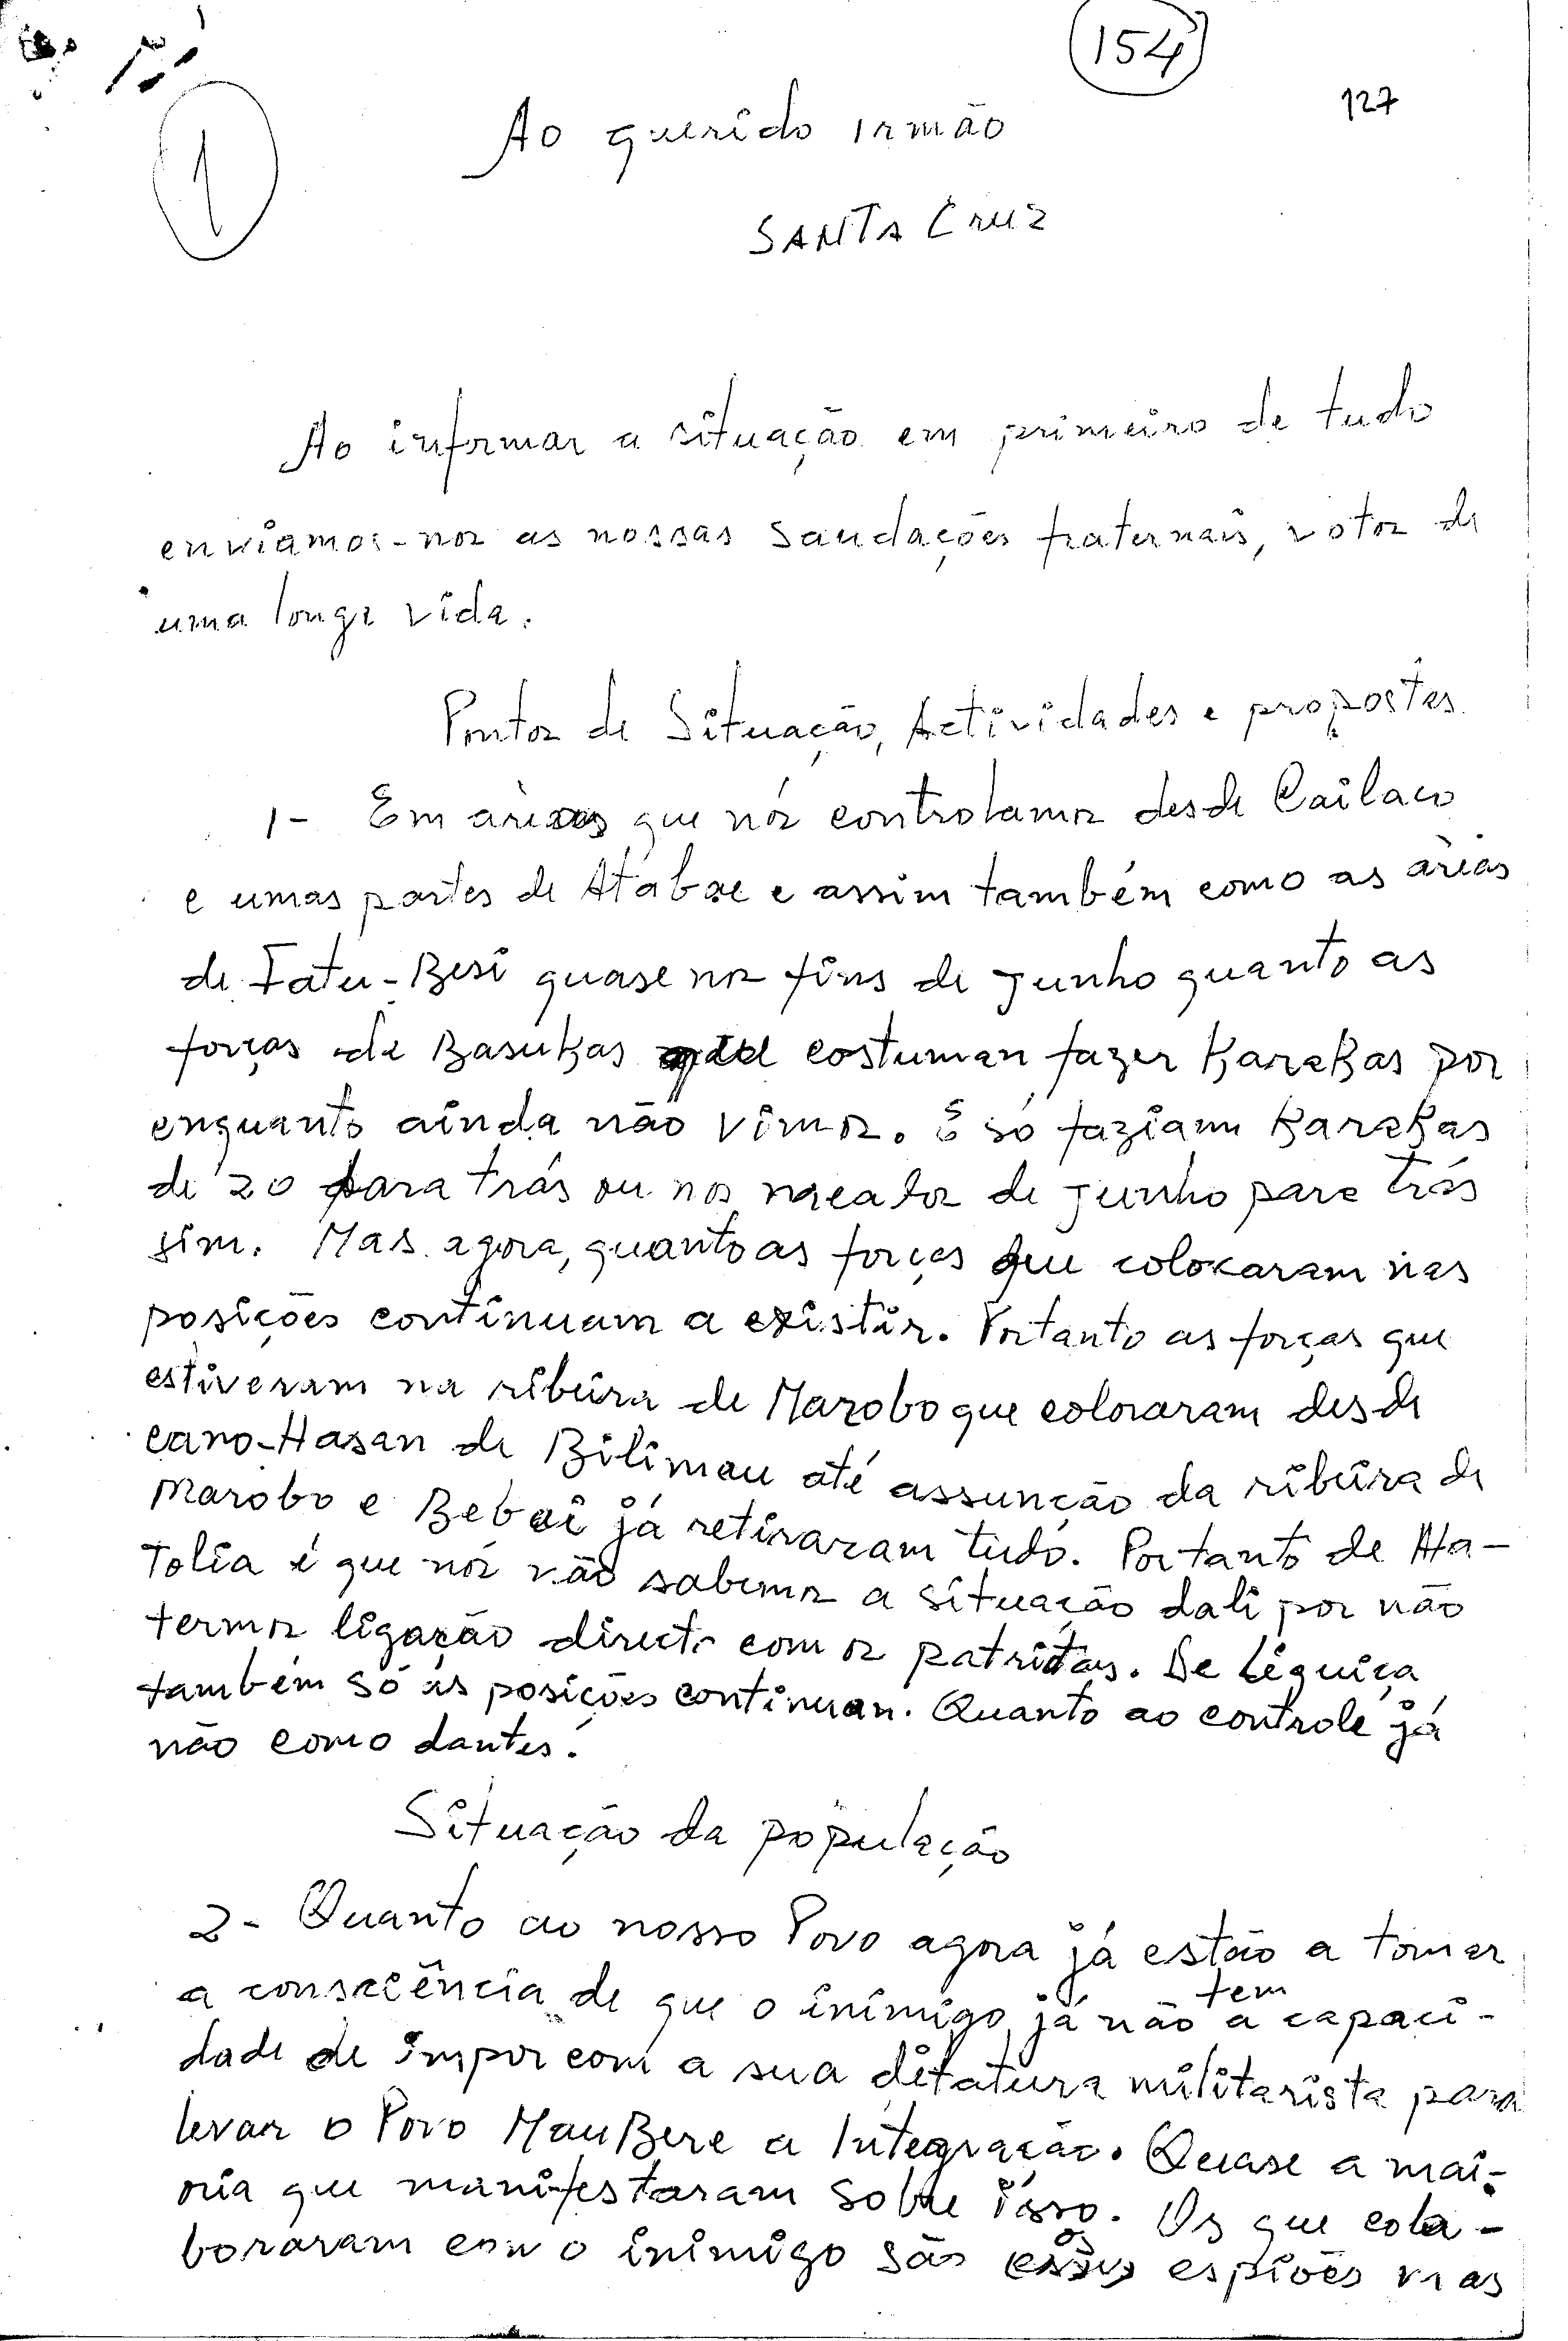 154
127
1
Ao querido irmão
SANTA Cruz
Ao informar a situação em primeiro de tudo
enviamos-nos as nossas saudações fraternais, votos de
uma longa vida.
Pontos de Situação, Actividades e propostas
1- Em àreas que nós controlamos desde Cailaco
e umas partes de Atabae e assim também como as àreas
de Fatu-Besi quase nos fins de Junho quanto as
forças de Basukas que costuman fazer Karakas por
enquanto ainda não vimos. E só faziam Karakas
de 20 para trás ou nos meados de Junho para trás
sim. Mas agora, quanto as forças que colocaram nas
posições continuam a existir. Portanto as forças que
estiveram na ribeira de Marobo que colocaram desde
cano-Hasan de Bilimau até assunção da ribeira de
Marobo e Beboi já retiraram tudo. Portanto de Ha-
tolia é que nós não sabemos a situação dali por não
termos ligação directa com os patriotas. De Liquiça
também só as posições continuan. Quanto ao controle já
não como dantes.
Situação da população
2- Quanto ao nosso Povo agora já estão a tomar
a consciência de que o inimigo já não tem a capaci-
dade de impor com a sua ditatura militarista para
levar o Povo MauBere a Integração. Quase a mai-
oria que manifestaram sobre isso. Os que cola-
boraram com o inimigo são os espiões mas